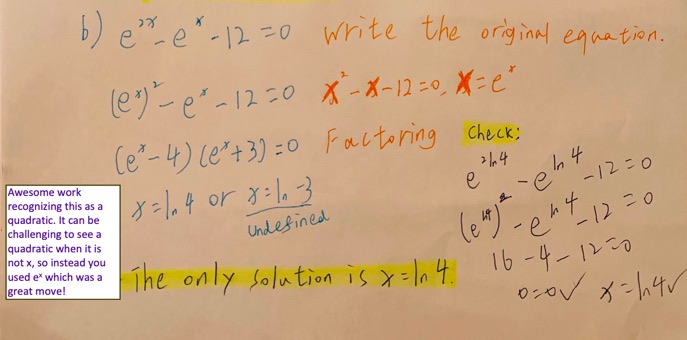 b) e²ˣ - eˣ - 12 = 0 Write the original equation.
(eˣ)² - eˣ - 12 = 0 x² - x - 12 = 0, x = eˣ
(eˣ - 4)(eˣ + 3) = 0 Factoring
x = ln 4 or x = ln -3
undefined
The only solution is x = ln 4.
Check:
e^2ln4 - e^ln4 - 12 = 0
(e^ln4)² - e^ln4 - 12 = 0
16 - 4 - 12 = 0
0 = 0 ✓ x = ln 4 ✓
Awesome work
recognizing this as a
quadratic. It can be
challenging to see a
quadratic when it is
not x, so instead you
used eˣ which was a
great move!